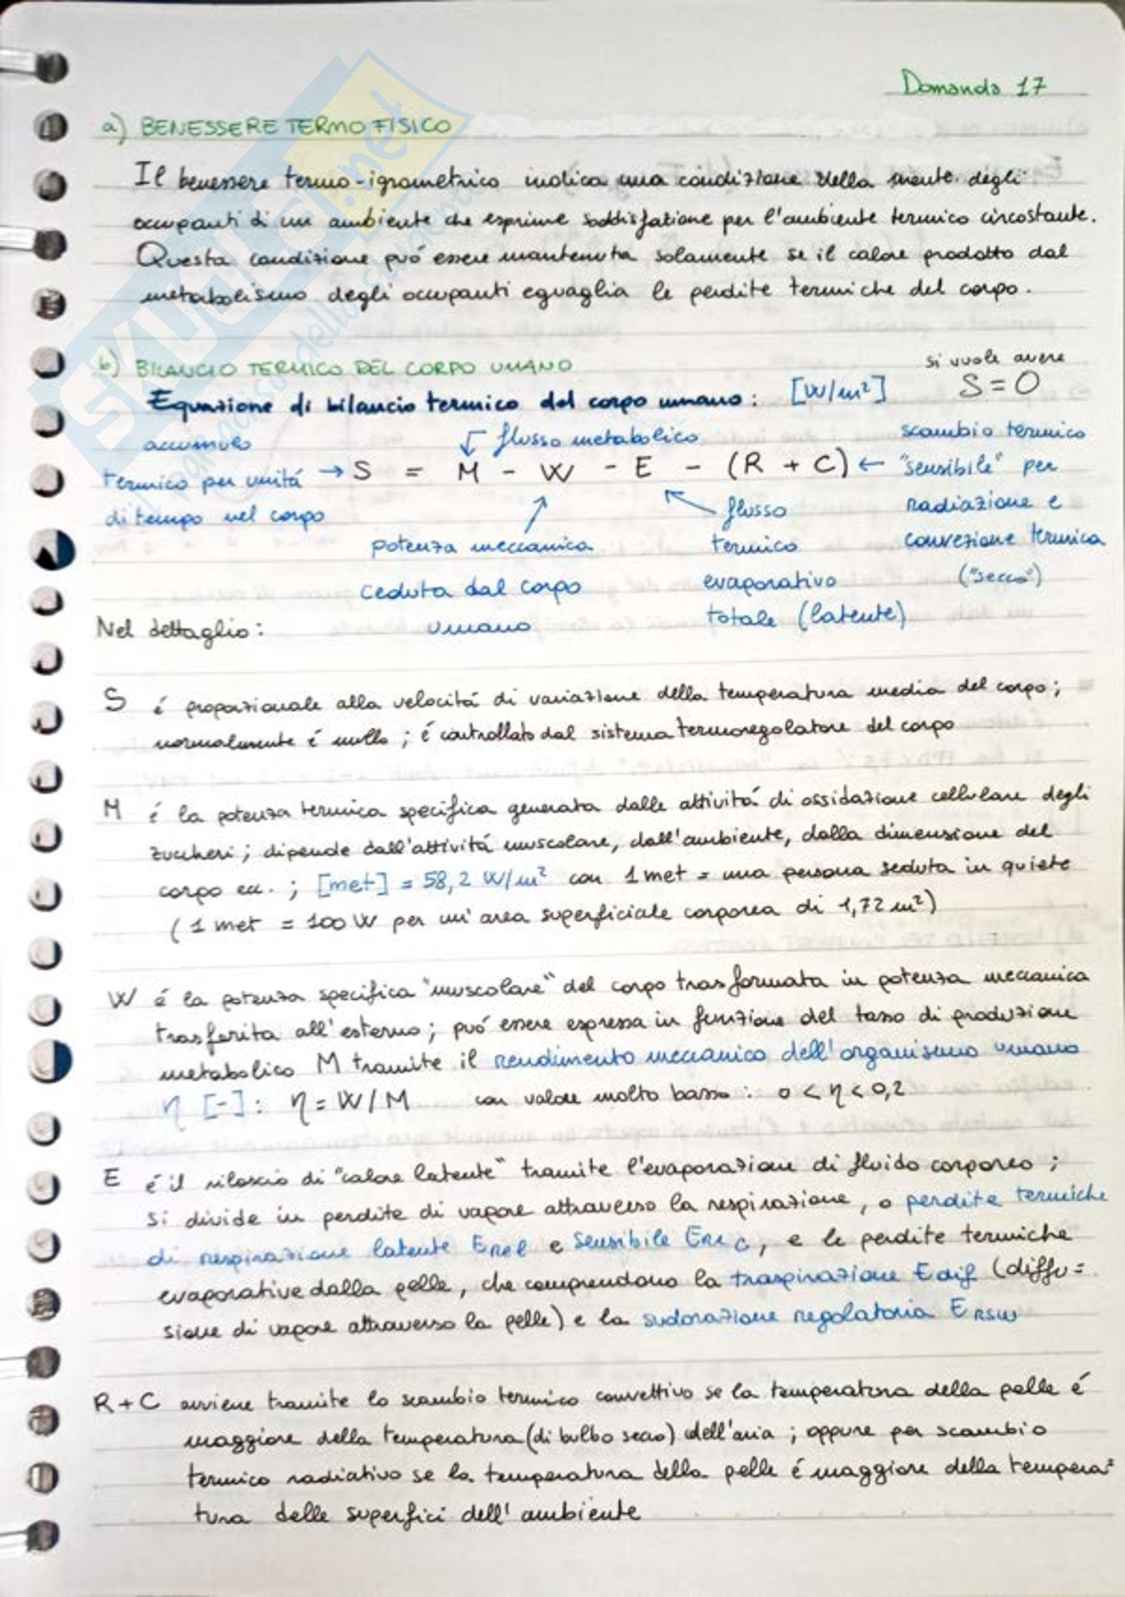 Domanda 17
a) BENESSERE TERMOFISICO
Il benessere termo-igrometrico indica una condizione della mente degli
occupanti di un ambiente che esprime soddisfazione per l'ambiente termico circostante.
Questa condizione può essere mantenuta solamente se il calore prodotto dal
metabolismo degli occupanti eguaglia le perdite termiche del corpo.
b) BILANCIO TERMICO DEL CORPO UMANO
si vuole avere
Equazione di bilancio termico del corpo umano: [W/m²] S=0
accumulo
termico per unitá
di tempo nel corpo
flusso metabolico
→ S = M - W - E - (R + C) ←
potenza meccanica
ceduta dal corpo
umano
flusso
termico
evaporativo
totale (latente)
scambio termico
"sensibile" per
radiazione e
convezione termica
("secco")
Nel dettaglio:
S é proporzionale alla velocitá di variazione della temperatura media del corpo;
normalmente é nullo; é controllato dal sistema termoregolatore del corpo
M é la potenza termica specifica generata dalle attivitá di ossidazione cellulare degli
zuccheri; dipende dall'attivitá muscolare, dall'ambiente, dalla dimensione del
corpo ecc.; [met] = 58,2 W/m² con 1 met = una persona seduta in quiete
(1 met = 100 W per un'area superficiale corporea di 1,72 m²)
W é la potenza specifica "muscolare" del corpo trasformata in potenza meccanica
trasferita all'esterno; puó essere espressa in funzione del tasso di produzione
metabolico M tramite il rendimento meccanico dell'organismo umano
η [-]: η = W/M con valore molto basso: 0 < η < 0,2
E é il rilascio di "calore latente" tramite l'evaporazione di fluido corporeo;
si divide in perdite di vapore attraverso la respirazione, o perdite termiche
di respirazione latente E e sensibile E, e le perdite termiche
evaporative dalla pelle, che comprendono la traspirazione Edif (diffu=
sione di vapore attraverso la pelle) e la sudorazione regolatoria ERSW
R+C avviene tramite lo scambio termico convettivo se la temperatura della pelle é
maggiore della temperatura (di bulbo secco) dell'aria; oppure per scambio
termico radiativo se la temperatura della pelle é maggiore della tempera=
tura delle superfici dell'ambiente